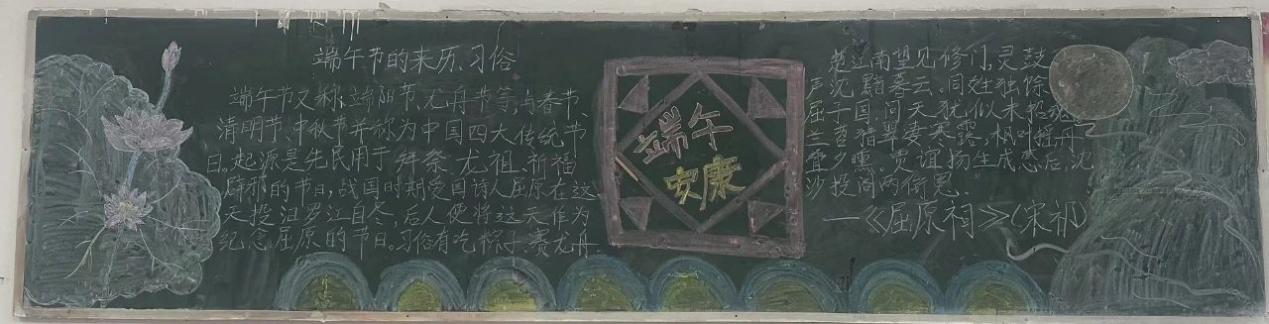 端午节的来历、习俗
端午节又称:端阳节、龙舟节等,与春节、
清明节、中秋节并称为中国四大传统节
日。起源是先民用于拜祭龙祖、祈福
辟邪的节日,战国时期爱国诗人屈原在这
天投汨罗江自尽,后人便将这天作为
纪念屈原的节日。习俗有吃粽子、赛龙舟
端午
安康
楚江南望见修门,灵鼓
声沈黯暮云.同姓独馀
屈子国.问天犹似未招魂
兰苕猎翠凄寒露,枫叶摇丹
堕夕曛.贾谊扬生成感后,沈
沙投阁两衔冤.
—《屈原祠》(宋祁)